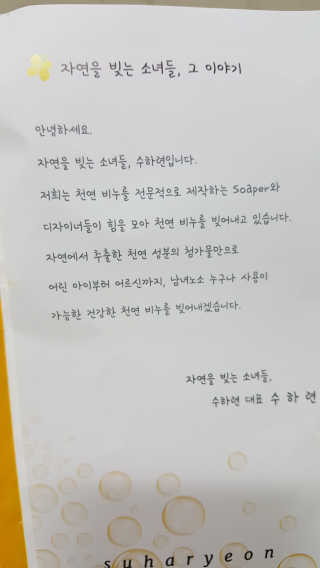 자연을 빚는 소녀들, 그 이야기
안녕하세요.
자연을 빚는 소녀들, 수하련입니다.
저희는 천연 비누를 전문적으로 제작하는 Soaper와
디자이너들이 힘을 모아 천연 비누를 빚어내고 있습니다.
자연에서 추출한 천연 성분의 첨가물만으로
어린 아이부터 어르신까지, 남녀노소 누구나 사용이
가능한 건강한 천연 비누를 빚어내겠습니다.
자연을 빚는 소녀들,
수하련 대표 수 하 련
suharyeon